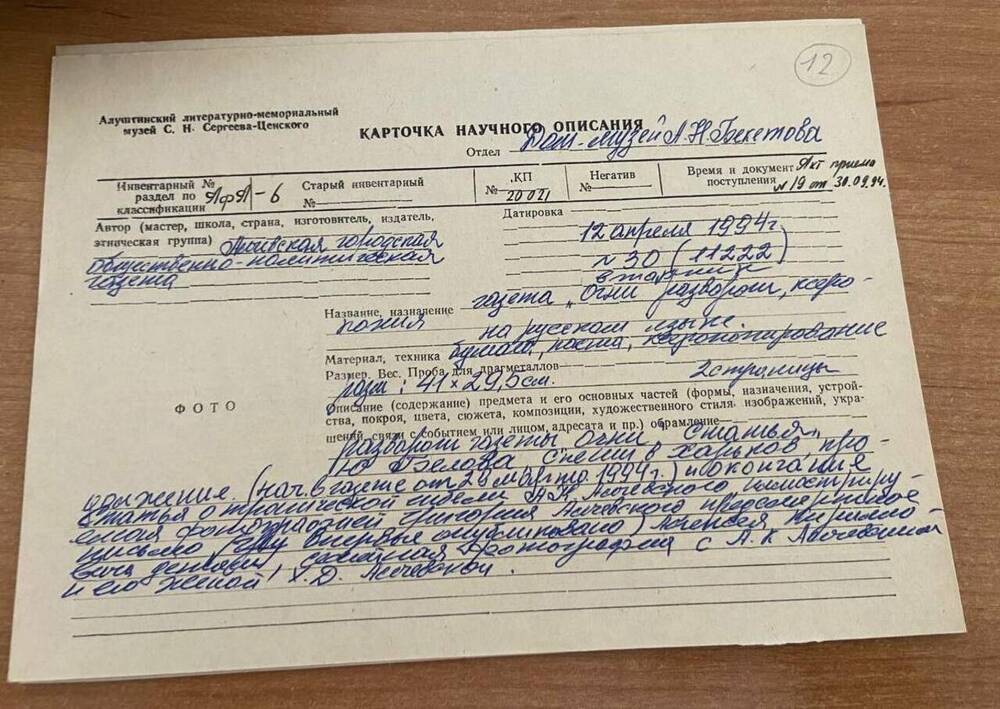 12
Алуштинский литературно-мемориальный
музей С. Н. Сергеева-Ценского
КАРТОЧКА НАУЧНОГО ОПИСАНИЯ
Отдел Дом-музей А.Н.Бекетова
Инвентарный №
раздел по
классификации АфА-6
Старый инвентарный
№
КП
№ 20021
Негатив
№
Время и документ Акт приема
поступления № 19 от 30.09.94.
Автор (мастер, школа, страна, изготовитель, издатель,
этническая группа) Алчевская городская
общественно-политическая
газета
Датировка
12 апреля 1994г.
№ 30 (11222)
вторник
Название, назначение газета „Огни разворот, ксеро-
копия на русском языке.
Материал, техника бумага, паста, ксерокопирование
Размер. Вес. Проба для драгметаллов
разм: 41×29,5см. 2 страницы
ФОТО
Описание (содержание) предмета и его основных частей (формы, назначения, устрой-
ства, покроя, цвета, сюжета, композиции, художественного стиля изображений, укра-
шений, связи с событием или лицом, адресата и пр.) обрамление
разворот газеты „Огни Статья
Ю Белова Спеши в Харьков, про-
должение (нач. в газете от 26 марта 1994г.) и окончание
Статья о трагической гибели А.К. Алчевского иллюстриру-
емая фотографией Григория Алчевского предсмертное
письмо (впервые опубликовано) Алексея Кирилло-
вича, фотография с А.К Алчевским
и его женой Х.Д. Алчевской.